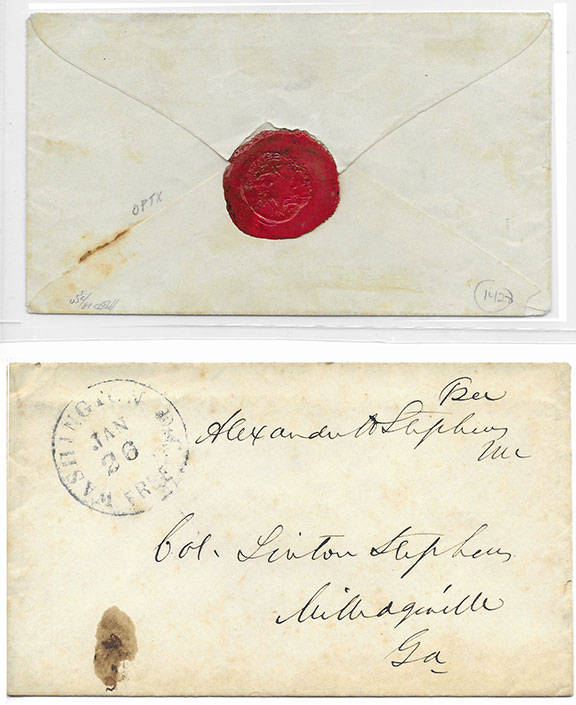 OPTX
1423
Free
Alexander H Stephens
MC
WASHINGTON D.C.
JAN
26
FREE
Col. Linton Stephens
Milledgeville
Ga